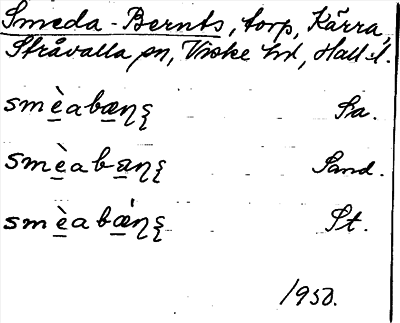 Smeda-Bernts, torp, Kärra,
Stråvalla sn, Viske hd, Hall. l.
smè̲abæ̲ɳʂ Sa.
smè̲abæ̲ɳʂ Sand.
smè̲abǽ̲ɳʂ St.
1950.